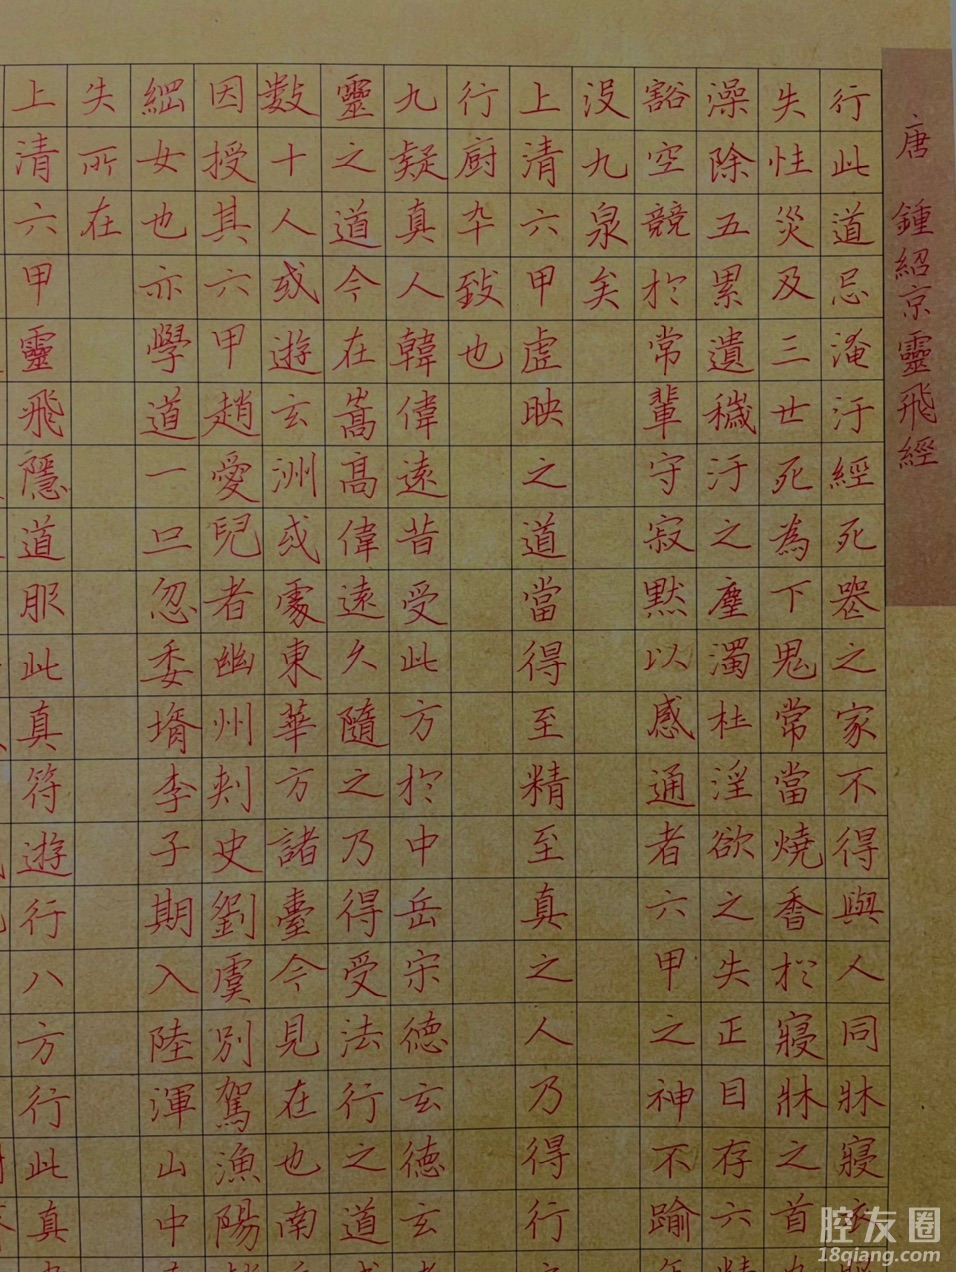 唐 鍾紹京靈飛經
行此道忌淹汙經死喪之家不得與人同牀寢衣
失性災及三世死為下鬼常當燒香於寢牀之首
澡除五累遺穢汙之塵濁杜淫欲之失正目存六
豁空競於常輩守寂默以感通者六甲之神不踰
没九泉矣
上清六甲虚映之道當得至精至真之人乃得行
行厨卒致也
九疑真人韓偉遠昔受此方於中岳宗德玄德玄
靈之道今在嵩高偉遠久隨之乃得受法行之道
數十人或遊玄洲或處東華方諸臺今見在也南
因授其六甲趙愛兒者幽州刾史劉虞别駕漁陽
細女也亦學道一旦忽委壻李子期入陸渾山中
失所在
上清六甲靈飛隱道服此真符遊行八方行此真
腔友圈
18qiang.com